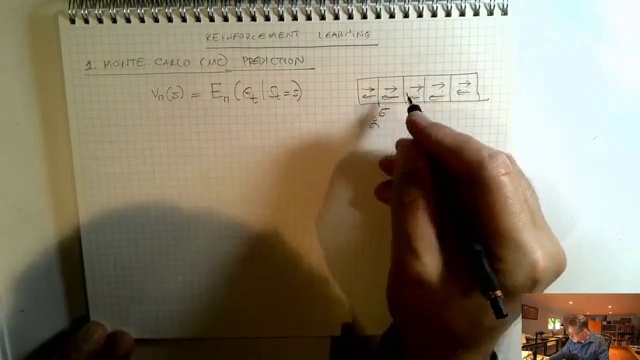 REINFORCEMENT LEARNING
1 MONTE CARLO (MC) PREDICTION
Vπ(s) = Eπ(Gt | St=s)